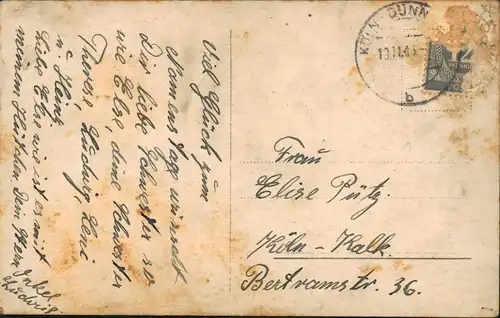 Viel Glück zum
Namenstage wünscht
Dir liebe Schwester so
wie Else, deine Schwester
Therese, Ludwig, Leni
u. Heinz
Liebe Else wie ist es mit
meinem Dein
Onkel
Ludwig
KÖLN-DÜNN
b
12
Frau
Elise Pütz.
Köln - Kalk.
Bertramstr. 36.